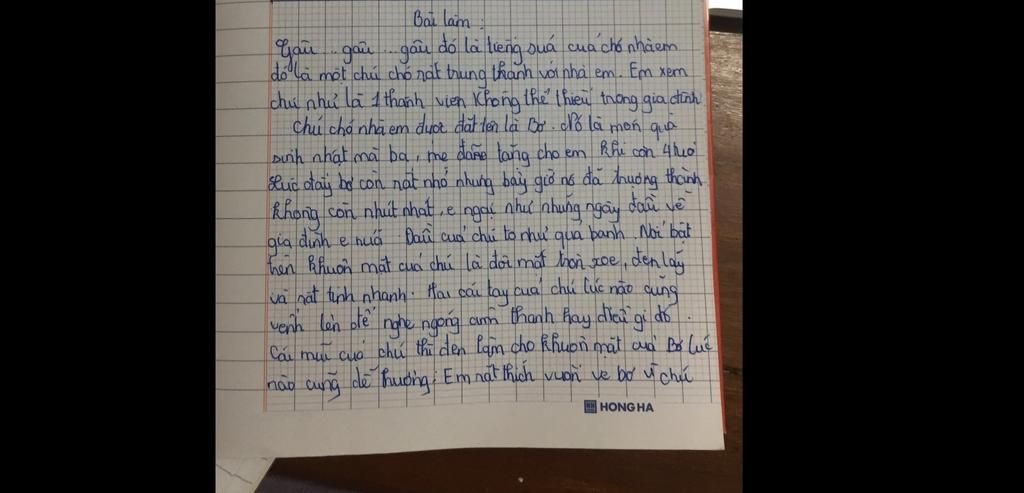 Bài làm :
Gâu ... gâu ... gâu đó là tiếng suả cuả chó nhà em
đó là một chú chó rất trung thành với nhà em. Em xem
chú như là 1 thành viên không thể thiếu trong gia đình
Chú chó nhà em được đặt tên là Bơ. Nó là món quà
sinh nhật mà ba, mẹ đã tặng cho em khi còn 4 tuổi
lúc đấy bơ còn rất nhỏ nhưng bây giờ nó đã trưởng thành
không còn nhút nhát, e ngại như những ngày đầu về
gia đình e nuã. Đầu cuả chú to như quả banh. Nổi bật
trên khuôn mặt cuả chú là đôi mắt tròn xoe, đen láy
và rất tinh nhanh. Hai cái tay cuả chú lúc nào cũng
vểnh lên để nghe ngóng âm thanh hay điều gì đó.
Cái mũi cuả chú thì đen lắm cho khuôn mặt cuả Bơ lúc
nào cũng dễ thương. Em rất thích vuốt ve bơ vì chú
HONG HA